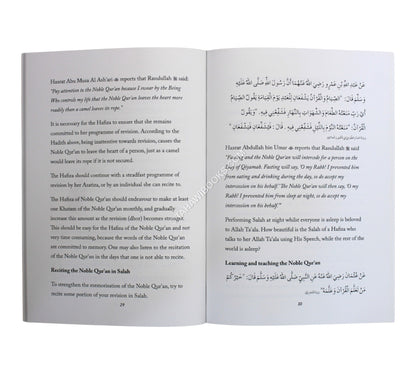 Hazrat Abu Musa Al Ash'ari ﷺ reports that Rasulullah ﷺ said:
"Pay attention to the Noble Qur'an because I swear by the Being
Who controls my life that the Noble Qur'an leaves the heart more
readily than a camel leaves its rope."
It is necessary for the Hafiza to ensure that she remains
committed to her programme of revision. According to the
Hadith above, being inattentive towards revision, causes the
Noble Qur'an to leave the heart of a person, just as a camel
would leave its rope if it is not secured.
The Hafiza should continue with a steadfast programme of
revision by her Asatiza, or by an individual she can recite to.
The Hafiza of Noble Qur'an should endeavour to make at least
one Khatam of the Noble Qur'an monthly, and gradually
increase this amount as the revision (dhor) becomes stronger.
This should be easy for the Hafiza of the Noble Qur'an and not
very time consuming, because the words of the Noble Qur'an
are committed to memory. One may also listen to the recitation
of the Noble Qur'an in the days that one is not able to recite.
Reciting the Noble Qur'an in Salah
To strengthen the memorisation of the Noble Qur'an, try to
recite some portion of your revision in Salah.
29
عَنْ عَبْدِ اللَّهِ بْنِ عَمْرٍو رَضِيَ اللَّهُ عَنْهُمَا أَنَّ رَسُولَ اللَّهِ صَلَّى اللَّهُ عَلَيْهِ
وَسَلَّمَ قَالَ: "الصِّيَامُ وَالْقُرْآنُ يَشْفَعَانِ لِلْعَبْدِ يَوْمَ الْقِيَامَةِ يَقُولُ الصِّيَامُ
أَيْ رَبِّ مَنَعْتُهُ الطَّعَامَ وَالشَّهَوَاتِ بِالنَّهَارِ فَشَفِّعْنِي فِيهِ. وَيَقُولُ
الْقُرْآنُ: "مَنَعْتُهُ النَّوْمَ بِاللَّيْلِ فَشَفِّعْنِي فِيهِ. قَالَ: فَيَشْفَعَانِ فَيَشْفَعَانِ"
Hazrat Abdullah bin Umer reports that Rasulullah ﷺ said
"Fasting and the Noble Qur'an will intercede for a person on the
Day of Qiyamah. Fasting will say, 'O my Rabb! I prevented him
from eating and drinking during the day, so do accept my
intercession on his behalf.' The Noble Qur'an will then say, 'O
my Rabb! I prevented him from sleep at night, so do accept my
intercession on his behalf.'"
Performing Salah at night whilst everyone is asleep is beloved
to Allah Ta'ala. How beautiful is the Salah of a Hafiza who
talks to her Allah Ta'ala using His Speech, while the rest of the
world is asleep?
Learning and teaching the Noble Qur'an
عَنْ عُثْمَانَ رَضِيَ اللَّهُ عَنْهُ عَنِ النَّبِيِّ صَلَّى اللَّهُ عَلَيْهِ وَسَلَّمَ قَالَ: "خَيْرُكُمْ
مَنْ تَعَلَّمَ الْقُرْآنَ وَعَلَّمَهُ"
30